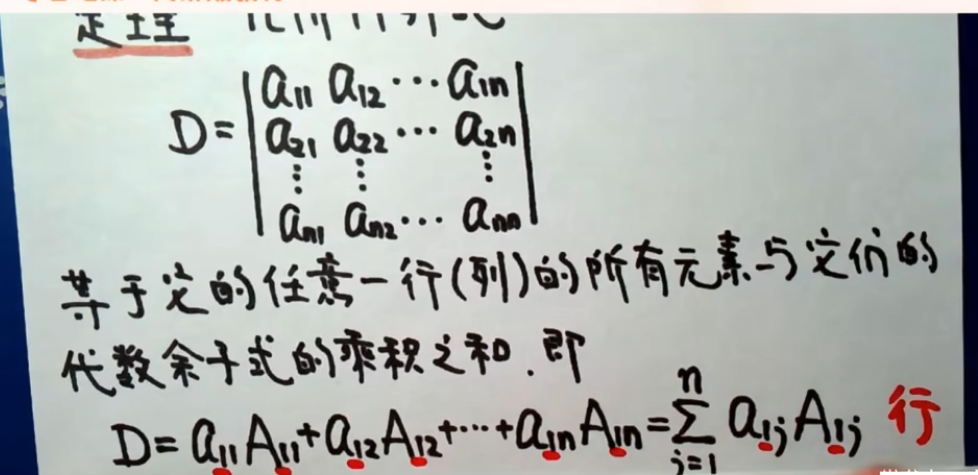 定理
D= | a₁₁ a₁₂ ⋯ a₁ₙ |
| a₂₁ a₂₂ ⋯ a₂ₙ |
⋮ ⋮ ⋮
| aₙ₁ aₙ₂ ⋯ aₙₙ |
等于它的任意一行(列)的所有元素与它们的
代数余子式的乘积之和.即
D=a₁₁A₁₁+a₁₂A₁₂+⋯+a₁ₙA₁ₙ=∑ⱼ₌₁ⁿ a₁ⱼA₁ⱼ 行